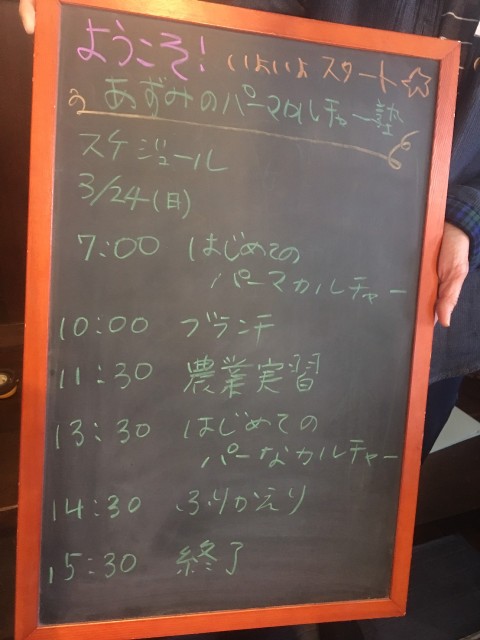 ようこそ! いよいよ スタート☆
あずみのパーマカルチャー塾
スケジュール
3/24(日)
7:00 はじめての
パーマカルチャー
10:00 ブランチ
11:30 農業実習
13:30 はじめての
パーなカルチャー
14:30 ふりかえり
15:30 終了